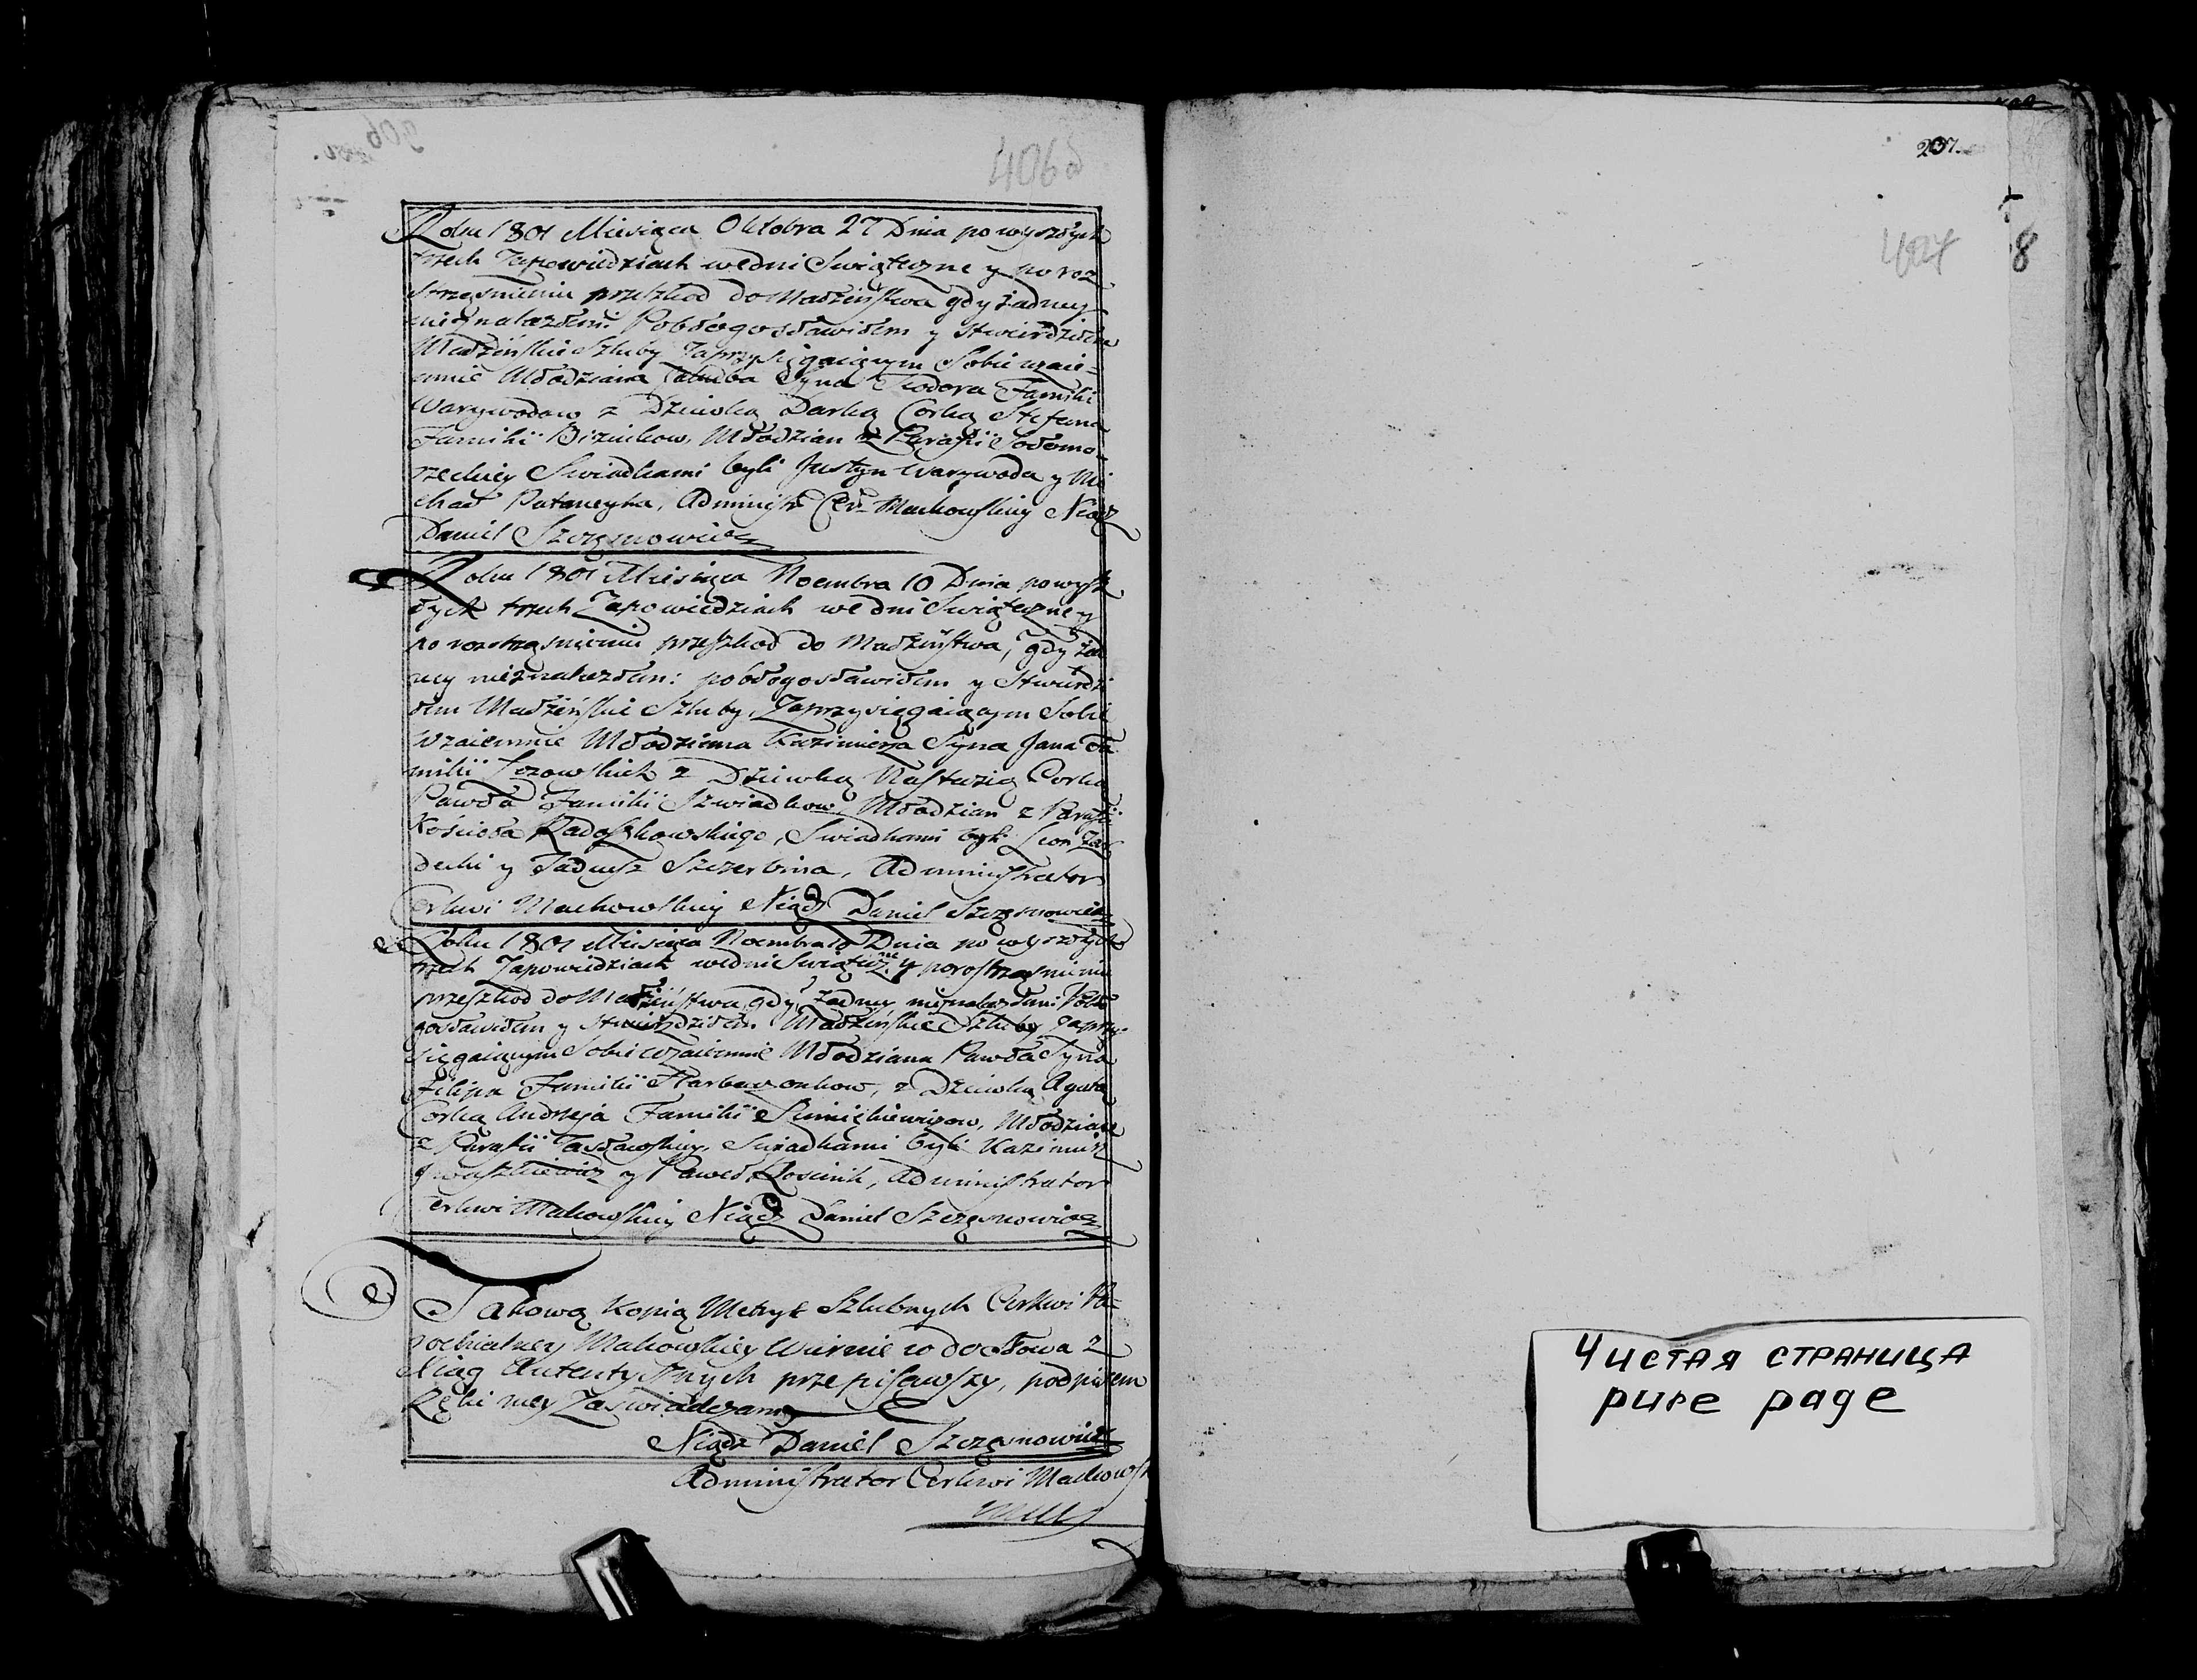 406б
Roku 1801 Miesiąca Oktobra 27 Dnia po wyszłych
trzech Zapowiedziach we dni Swiąteczne y po roz
strząsnieniu przeszkod do Małżeństwa gdy żadney
nieznalazłem Pobłogosławiłem y stwierdziłem
Małżeńskie Szluby Zaprzysięgaiącym Sobie wzaie=
mnie Młodziana Jakuba Syna Teodora Familii
Warywodow z Dziewką Darką Corką Stefana
Familii Biziukow, Młodzian z Parafii
rzeckiey Swiadkami byli Justyn Warywoda y Mi
chał Administ. Cer. Makowskiey Xiądz
Daniel Szczęsnowicz
Roku 1801 Miesiąca Noembra 10 Dnia po wysz
łych trzech Zapowiedziach we dni Swiąteczne y
po rozstrząsnieniu przeszkod do Małżeństwa, gdy żad
ney nieznalazłem: pobłogosławiłem y stwierdzi
łem Małżeńskie Szluby, Zaprzysięgaiącym Sobie
Wzaiemnie Młodziana Kazimierza Syna Jana Fa
milii z Dziewką Nastazią Corką
Pawła Familii Szwiadkow Młodzian z Parafii
Kościoła Radoszkowskiego, Swiadkami byli Leon
decki y Tadeusz Szczerbina, Administrator
Cerkwi Makowskiey Xiądz Daniel Szczęsnowicz
Roku 1801 Miesiąca Noembra 10 Dnia po wyszłych
trzech Zapowiedziach we dni Swiąteczne y po rostrząsnieniu
przeszkod do Małżeństwa, gdy żadney nieznalazłem Pobło
gosławiłem y stwierdziłem Małżeńskie Szluby zaprzy=
sięgaiącym Sobie wzaiemnie Młodziana Pawła Syna
Filipa Familii z Dziewką Agatą
Corką Andrzeja Familii Młodzian
z Parafii Swiadkami byli Kazimierz
y Paweł Administrator
Cerkwi Makowskiey Xiądz Daniel Szczęsnowicz
Takową Kopią Metryk Szlubnych Cerkwi Pa=
rochialney Makowskiey Wiernie co do słowa z
Xiąg Autentycznych przepisawszy, podpisem
Ręki mey Zaswiadczam
Xiądz Daniel Szczęsnowicz
Administrator Cerkwi Makows
207.
407
8
Чистая страница
pure page